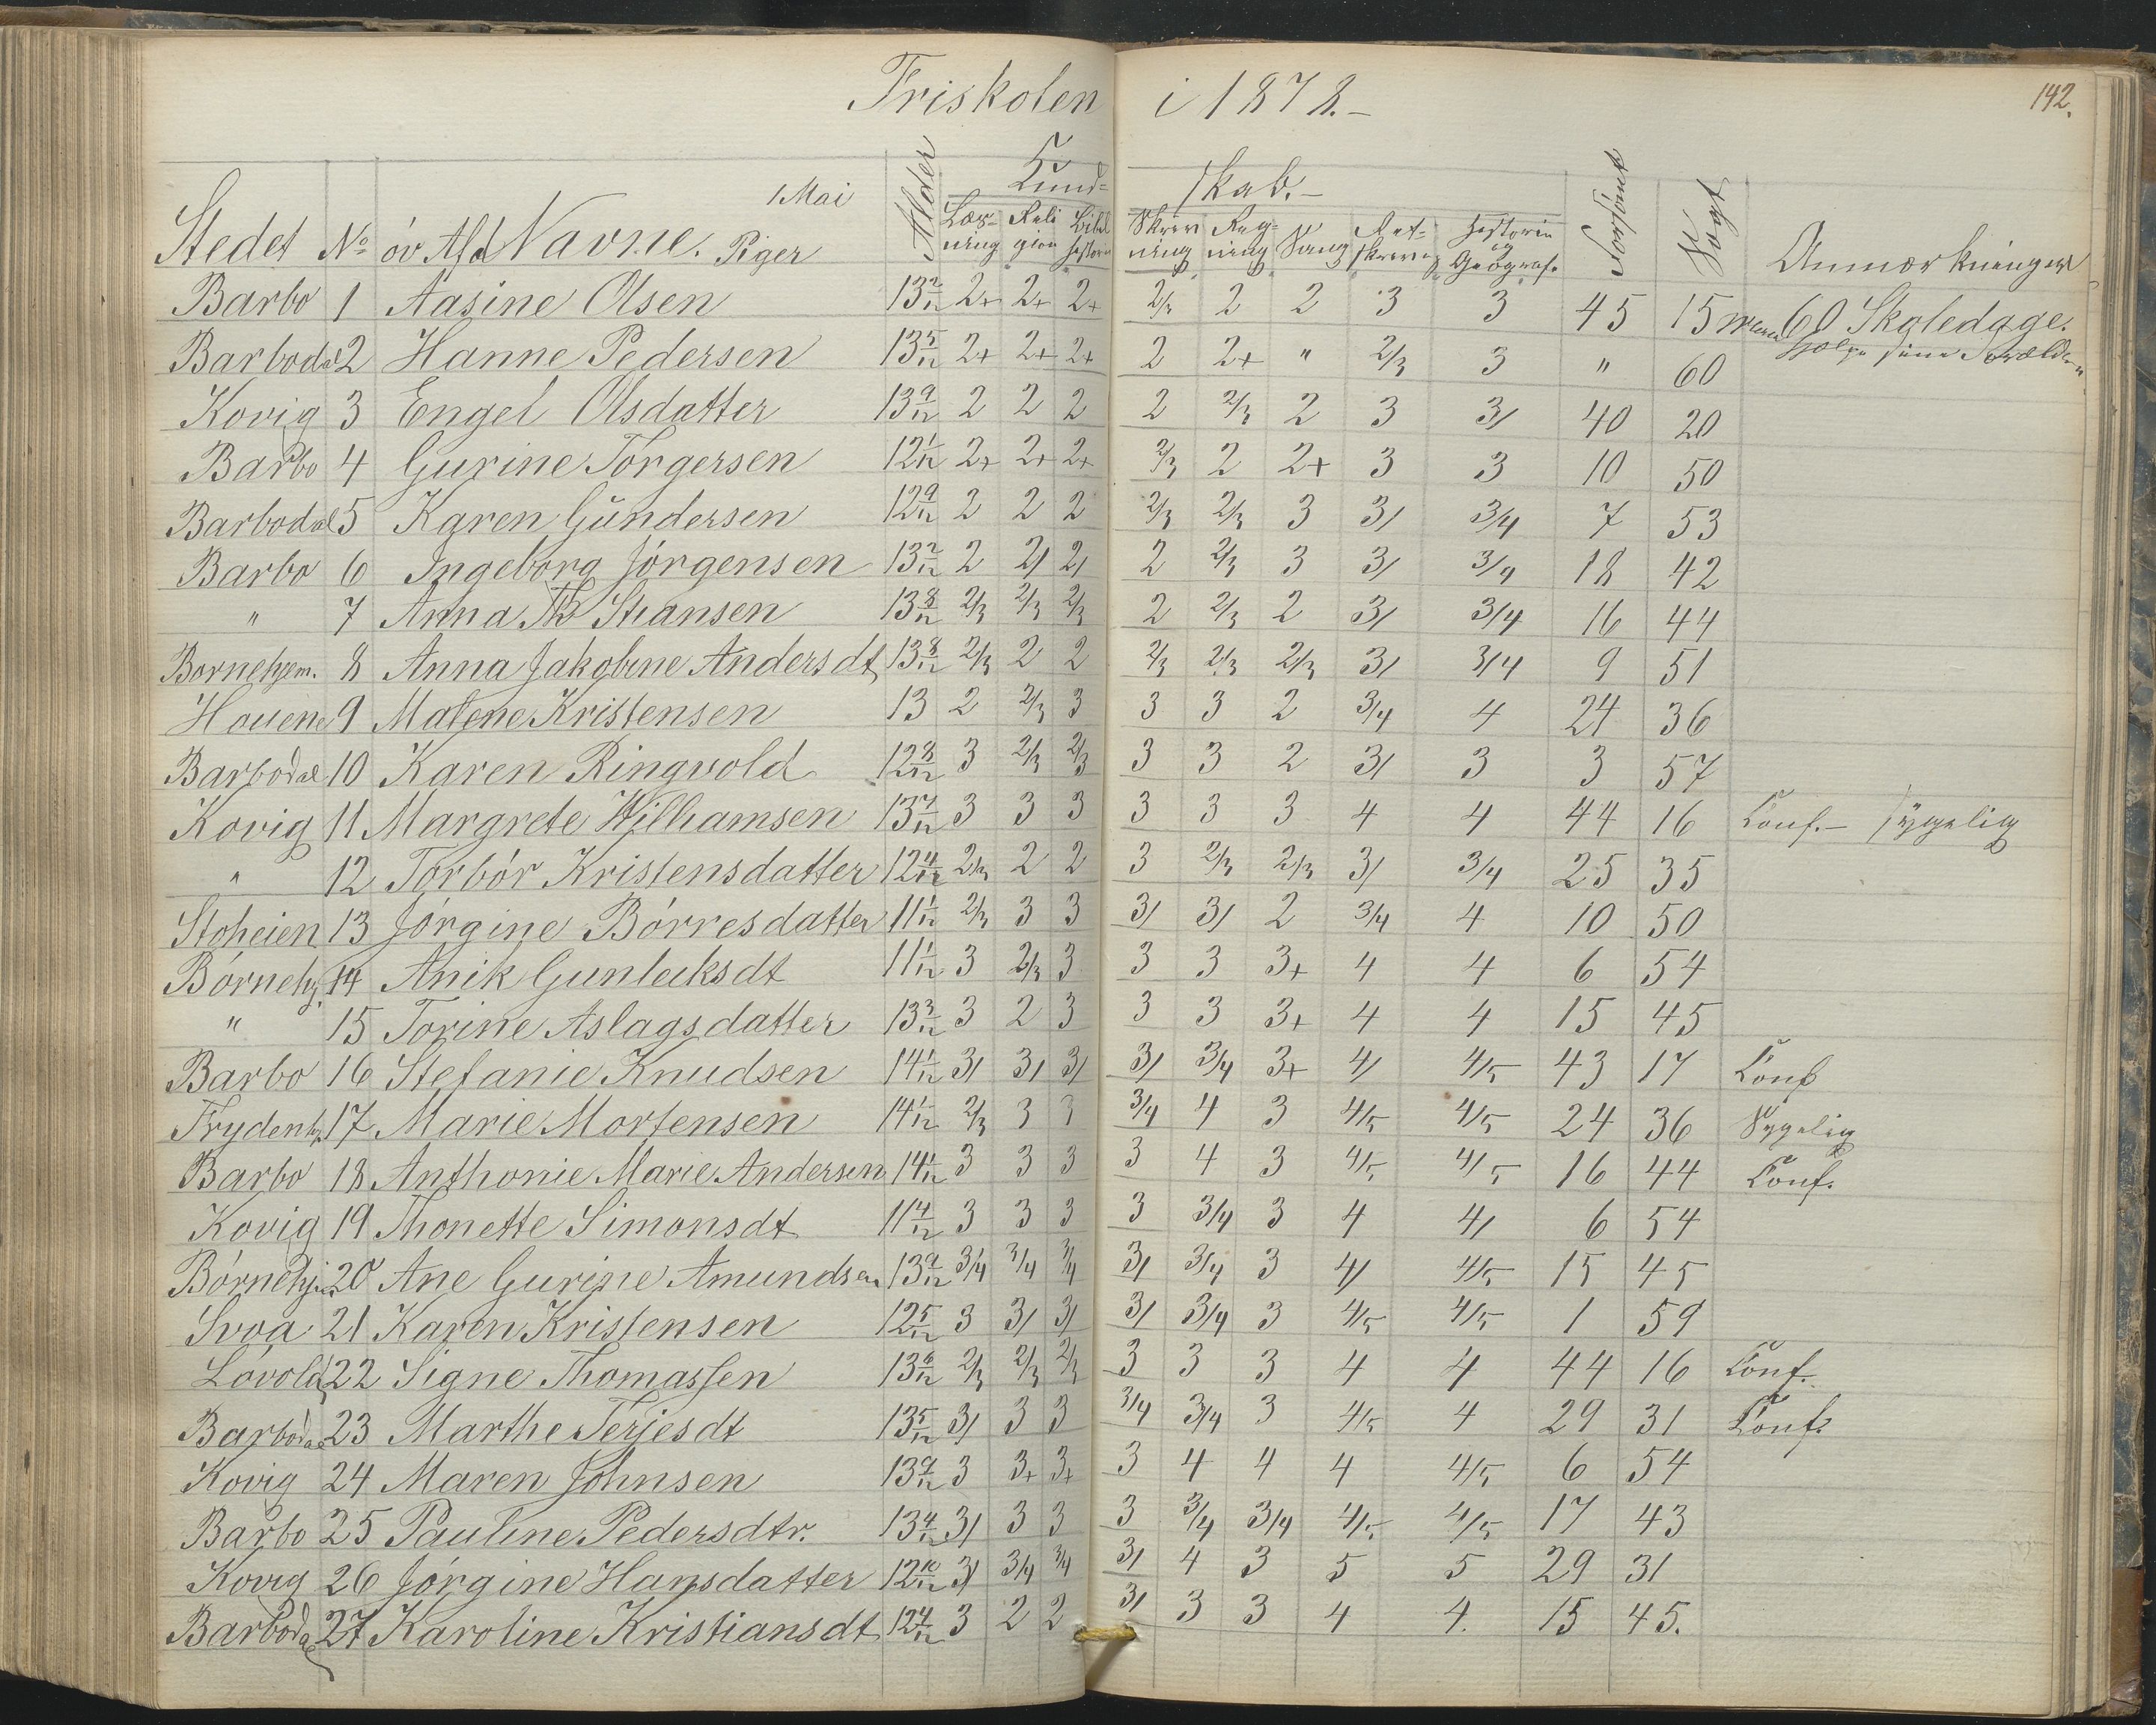 142.
Friskolen i 1878.-
Kund= skab.-
Stedet No öv Afd Navne. 1 Mai Piger Alder Læs-ning Reli gion Bibel historie Skriv ning Reg-ning Sang Ret-skrivn Historie og Geograf. Forsömt Sögt Anmærkninger
Barbo 1 Aasine Olsen 13 2/12 2+ 2+ 2+ 2/3 2 2 3 3 45 15 60 Skoledage.
Barbodal 2 Hanne Pedersen 13 5/12 2+ 2+ 2+ 2 2+ " 2/3 3 " 60
Kovig 3 Engel Olsdatter 13 9/12 2 2 2 2 2/3 2 3 3/ 40 20
Barbo 4 Gurine Torgersen 12 1/12 2+ 2+ 2+ 2/3 2 2+ 3 3 10 50
Barbodal 5 Karen Gundersen 12 9/12 2 2 2 2/3 2/3 3 3/ 3/4 7 53
Barbo 6 Ingeborg Jörgensen 13 2/12 2 2/ 2/ 2 2/3 3 3/ 3/4 18 42
" 7 Anna Th Stiansen 13 8/12 2/3 2/3 2/3 2 2/3 2 3/ 3/4 16 44
Bornehjem. 8 Anna Jakobine Andersdt 13 8/12 2/3 2 2 2/3 2/3 2/3 3/ 3/4 9 51
Houene 9 Malene Kristensen 13 2 2/3 3 3 3 2 3/4 4 24 36
Barbodal 10 Karen Ringvold 12 8/12 3 2/3 2/3 3 3 2 3/ 3 3 57
Kovig 11 Margrete Wilhamsen 13 7/12 3 3 3 3 3 3 4 4 44 16 Conf.- sÿgelig
" 12 Torbör Kristensdatter 12 4/12 2/3 2 2 3 2/3 2/3 3/ 3/4 25 35
Stoheien 13 Jörgine Börresdatter 11 1/12 2/3 3 3 3/ 3/ 2 3/4 4 10 50
Börnehj. 14 Anik Gunleiksdt 11 1/12 3 2/3 3 3 3 3+ 4 4 6 54
" 15 Torine Aslagsdatter 13 3/12 3 2 3 3 3 3+ 4 4 15 45
Barbo 16 Stefanie Knudsen 14 1/12 3/ 3/ 3/ 3/ 3/4 3+ 4/ 4/5 43 17 Conf
Frydenh. 17 Marie Mortensen 14 1/12 2/3 3 3 3/4 4 3 4/5 4/5 24 36 Sygelig
Barbo 18 Anthonie Marie Andersen 14 1/12 3 3 3 3 4 3 4/5 4/5 16 44 Conf.
Kovig 19 Thonette Simonsdt 11 4/12 3 3 3 3 3/4 3 4 4/ 6 54
Börnehj. 20 Ane Gurine Amundsen 13 9/12 3/4 3/4 3/4 3/ 3/4 3 4/ 4/5 15 45
Svoa 21 Karen Kristensen 12 5/12 3 3/ 3/ 3/ 3/4 3 4/5 4/5 1 59
Lövold 22 Signe Thomassen 13 6/12 2/3 2/3 2/3 3 3 3 4 4 44 16 Conf.
Barbodal 23 Marthe Terjesdt 13 5/12 3/ 3 3 3/4 3/4 3 4/5 4 29 31 Conf.
Kovig 24 Maren Johnsen 13 9/12 3 3+ 3+ 3 4 4 4 4/5 6 54
Barbo 25 Pauline Pedersdtr. 13 4/12 3/ 3 3 3 3/4 3/4 4/5 4/5 17 43
Kovig 26 Jörgine Hansdatter 12 10/12 3/ 3/4 3/4 3/ 4 3 5 5 29 31
Barbodal 27 Karoline Kristiansdt 12 4/12 3 2 2 3/ 3 3 4 4. 15 45.